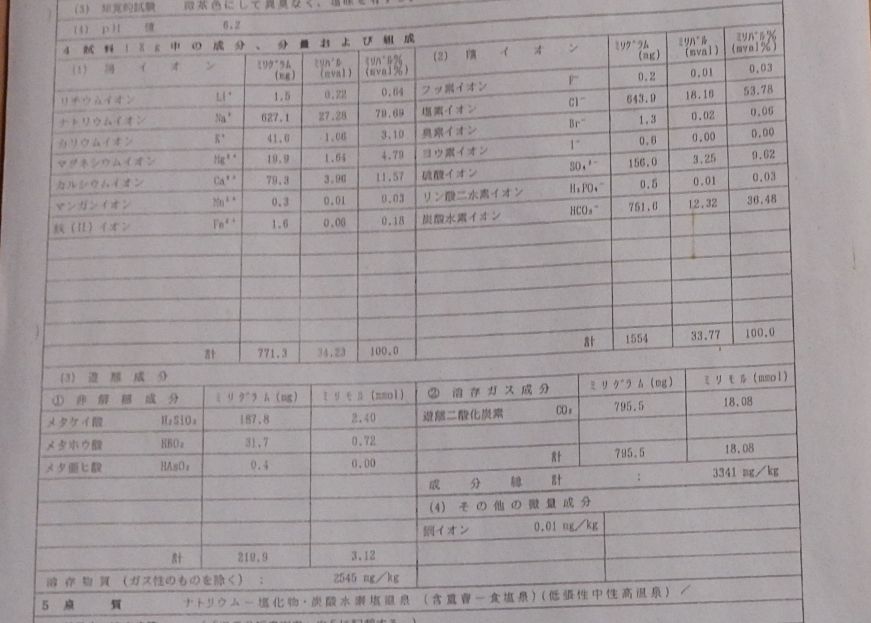 (3) 知覚的試験 微茶色にして異臭なく、塩味を有す
(4) pH 値 6.2
4 試料1Kg中の成分、分量および組成
(1) 陽イオン ミリグラム (mg) ミリバル (mval) ミリバル% (mval%)
リチウムイオン Li⁺ 1.5 0.22 0.64
ナトリウムイオン Na⁺ 627.1 27.28 79.69
カリウムイオン K⁺ 41.6 1.06 3.10
マグネシウムイオン Mg⁺⁺ 19.9 1.64 4.79
カルシウムイオン Ca⁺⁺ 79.3 3.96 11.57
マンガンイオン Mn⁺⁺ 0.3 0.01 0.03
鉄(II)イオン Fe⁺⁺ 1.6 0.06 0.18
計 771.3 34.23 100.0
(2) 陰イオン ミリグラム (mg) ミリバル (mval) ミリバル% (mval%)
フッ素イオン F⁻ 0.2 0.01 0.03
塩素イオン Cl⁻ 643.9 18.16 53.78
臭素イオン Br⁻ 1.3 0.02 0.06
ヨウ素イオン I⁻ 0.6 0.00 0.00
硫酸イオン SO₄²⁻ 156.0 3.25 9.62
リン酸二水素イオン H₂PO₄⁻ 0.5 0.01 0.03
炭酸水素イオン HCO₃⁻ 751.6 12.32 36.48
計 1554 33.77 100.0
(3) 遊離成分
① 非解離成分 ミリグラム(mg) ミリモル(mmol)
メタケイ酸 H₂SiO₃ 187.8 2.40
メタホウ酸 HBO₂ 31.7 0.72
メタ亜ヒ酸 HAsO₂ 0.4 0.00
計 219.9 3.12
② 溶存ガス成分 ミリグラム(mg) ミリモル(mmol)
遊離二酸化炭素 CO₂ 795.5 18.08
計 795.5 18.08
成分総計 : 3341 mg/kg
(4) その他の微量成分
銅イオン 0.01 mg/kg
溶存物質(ガス性のものを除く) : 2545 mg/kg
5 泉質 ナトリウム-塩化物・炭酸水素塩温泉(含重曹-食塩泉)(低張性中性高温泉)